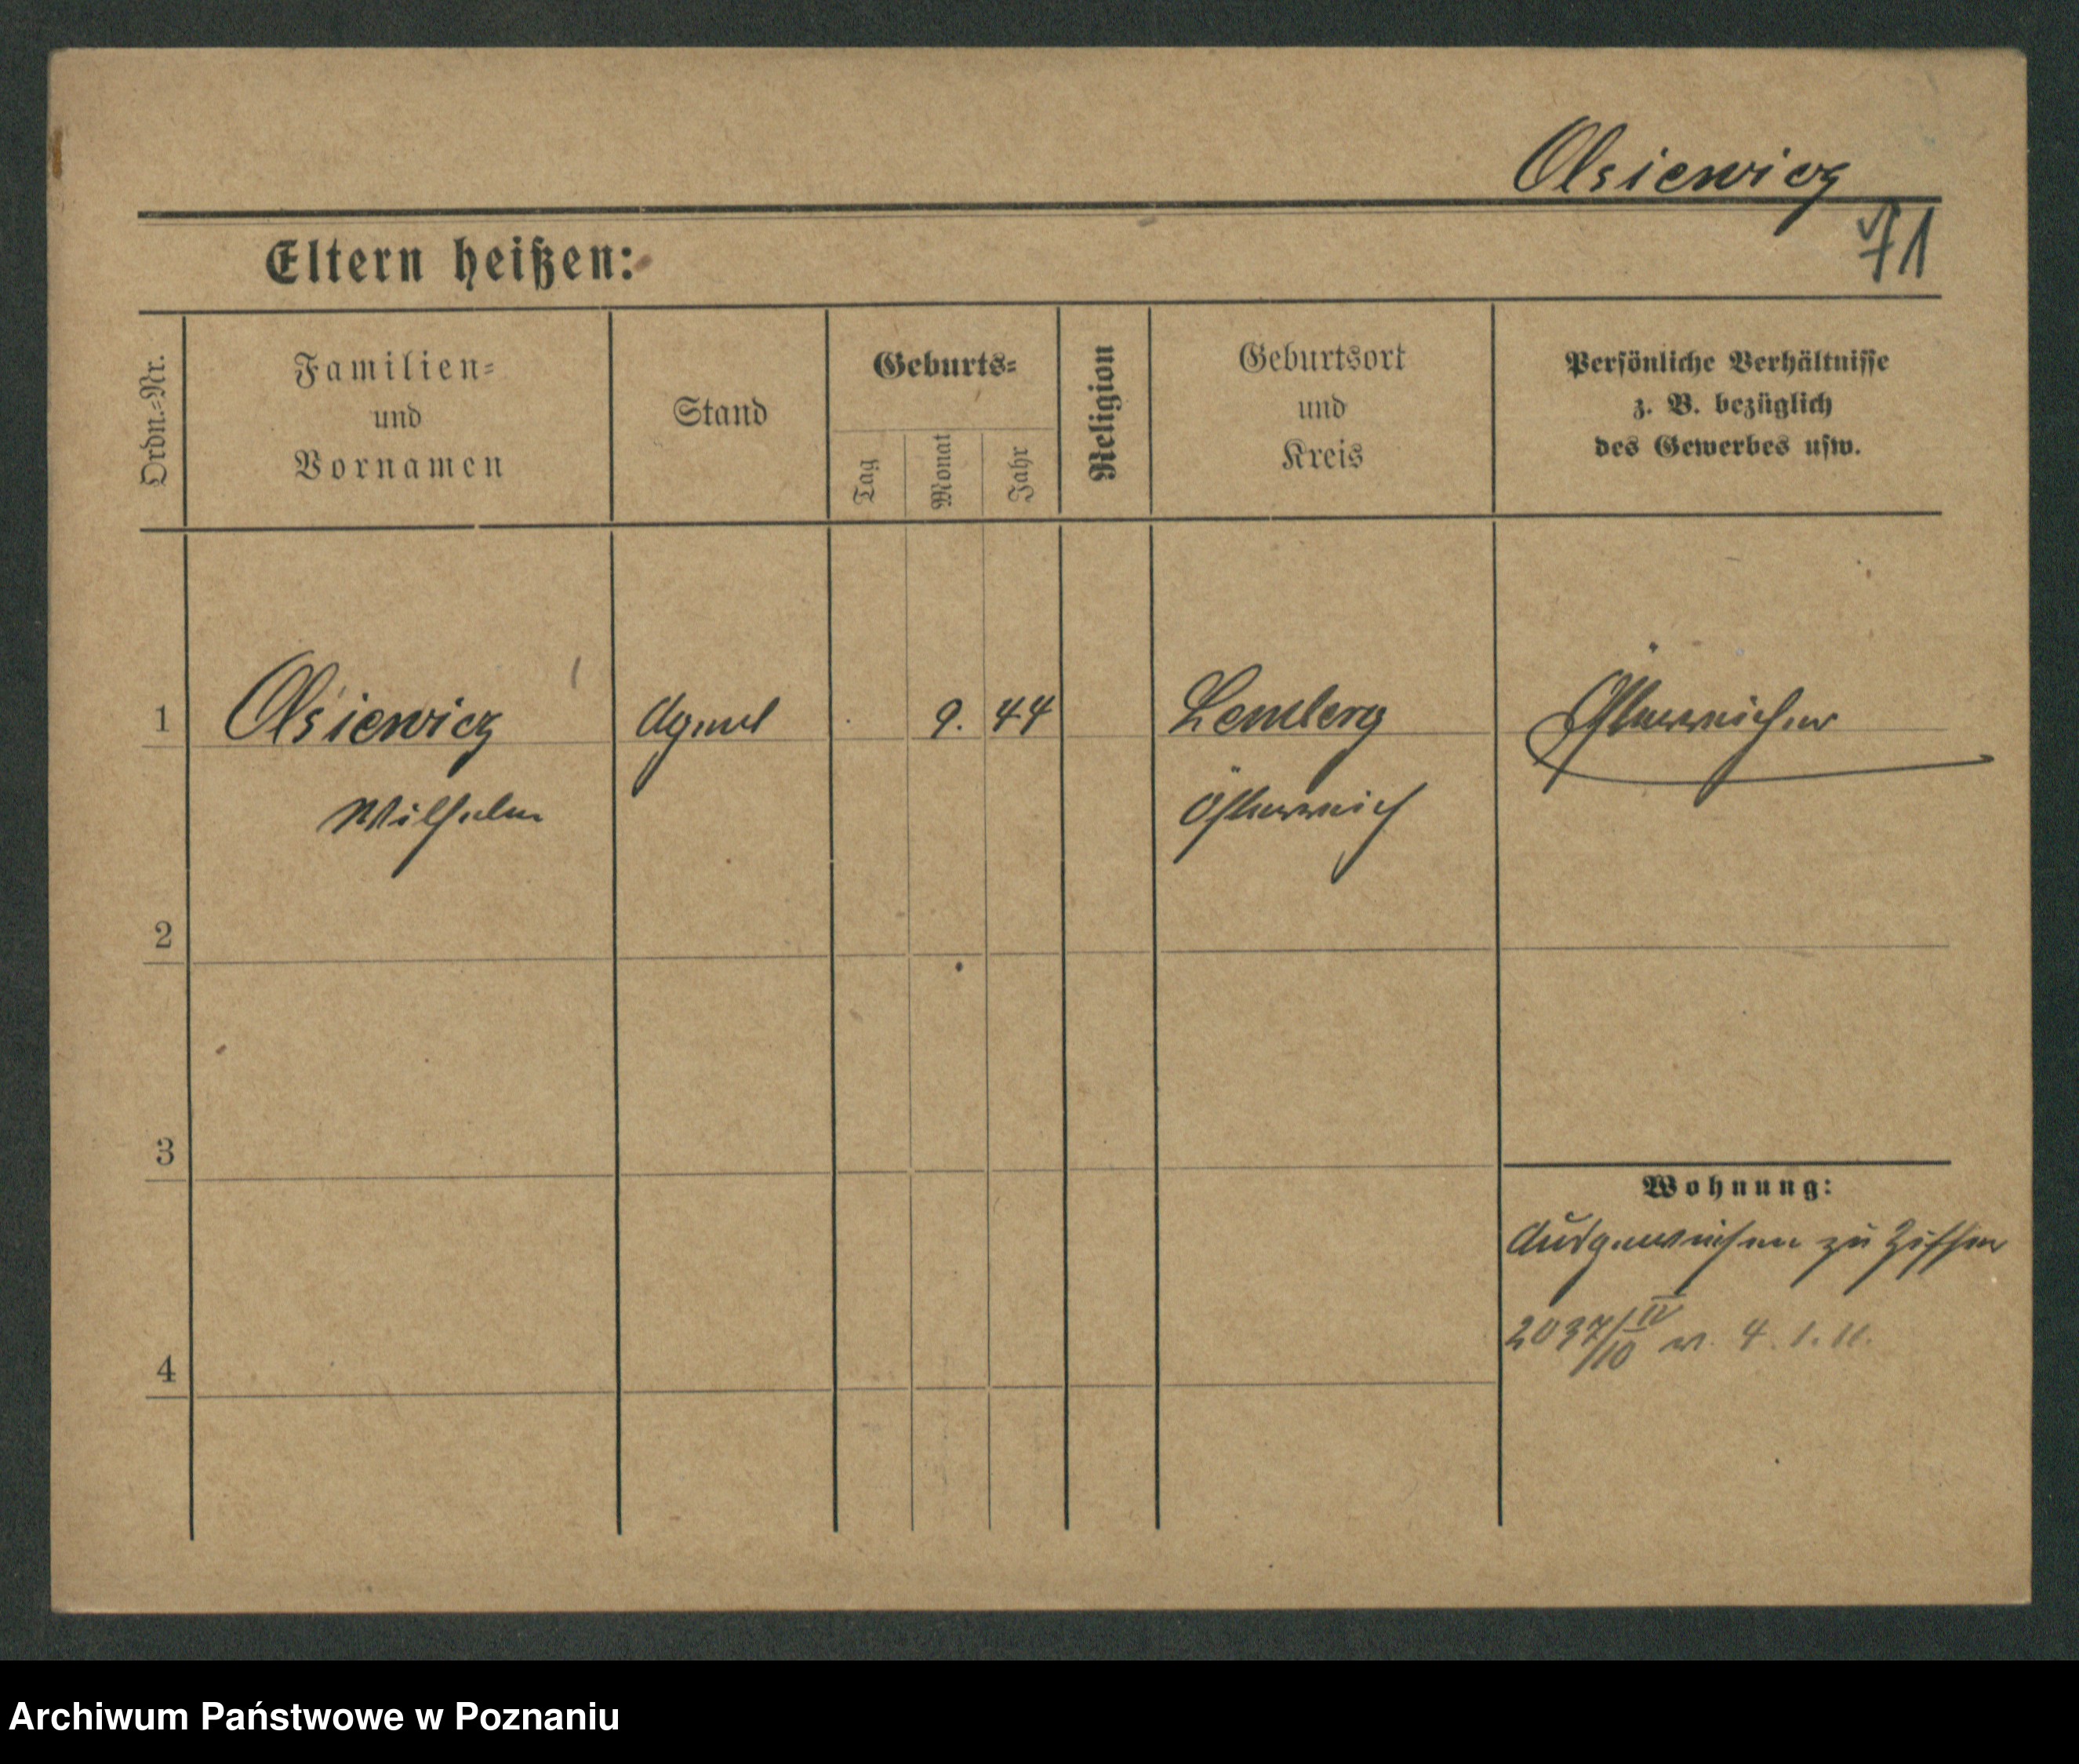 Olsiewicz
71
Eltern heißen:
Ordn.-Nr.
Familien-
und
Vornamen
Stand
Geburts-
Tag
Monat
Jahr
Religion
Geburtsort
und
Kreis
Persönliche Verhältnisse
z. B. bezüglich
des Gewerbes usw.
1
Olsiewicz
Agent
9.
44
Lemberg
Österreicher
Wilhelm
Österreich
2
3
Wohnung:
Ausgewiesen zu
2037/IV/10 v. 4.1.11.
4
Archiwum Państwowe w Poznaniu